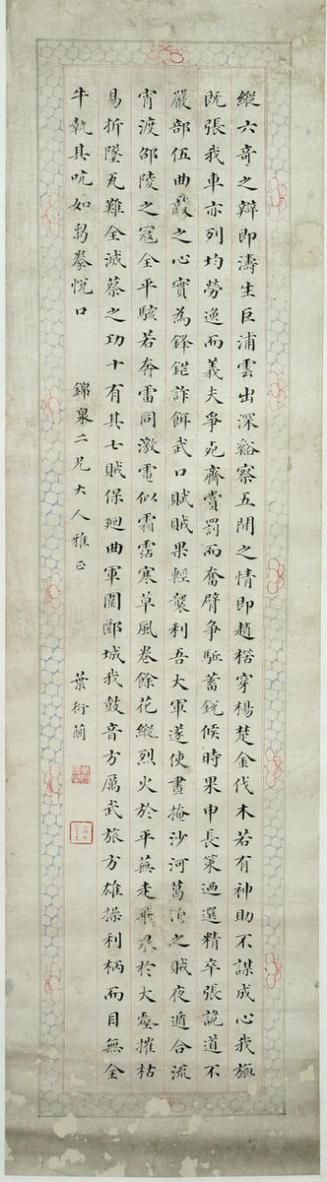 縱六奇之辯即濤生巨浦雲出深谿察五間之情即趙楛穿楊楚金伐木若有神助不謀成心我旗
既張我車亦列均勞逸而義夫爭死齊賞罰而奮臂爭駈蓄銳候時果申長策迺選精卒張詭道不
嚴部伍曲之心實為鋒鋩詐餌武口賊賊果輕襲利吾大軍遂使晝掩沙河葛之賊夜遁合流
宵渡邵陵之寇全平駭若奔雷同激電似霜霑寒草風卷餘花縱烈火於平蕪走於大壑摧枯
易折墜瓦難全滅蔡之功十有其七賊保迴曲軍圍郾城我鼓音方厲武旅方雄操利柄而目無全
牛執其吭如芻豢悅口 錦泉二兄大人雅正 葉衍蘭